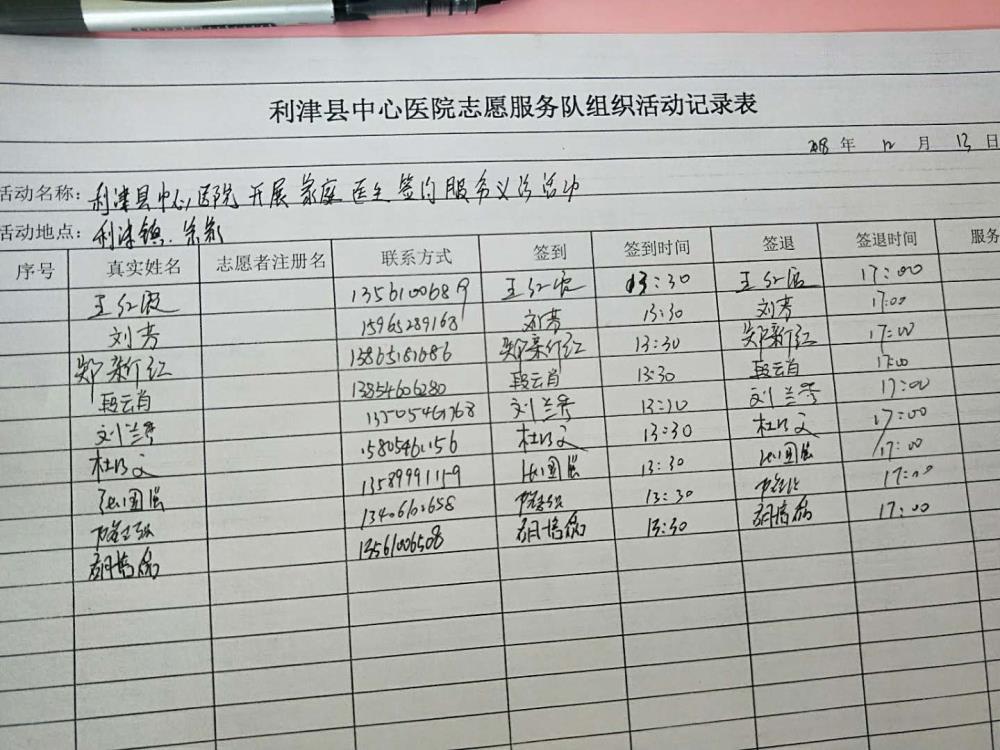 利津县中心医院志愿服务队组织活动记录表
2018 年 12 月 13 日
活动名称: 利津县中心医院开展家庭医生签约服务义诊活动
活动地点: 利津镇
序号 真实姓名 志愿者注册名 联系方式 签到 签到时间 签退 签退时间 服务
王红波 13561006819 王红波 13:30 王红波 17:00
刘芳 15965289168 刘芳 13:30 刘芳 17:00
郑新红 13865181686 郑新红 13:30 郑新红 17:00
段云肖 13854606280 段云肖 13:30 段云肖 17:00
刘兰秀 刘兰秀 13:30 刘兰秀 17:00
杜巧文 杜巧文 13:30 杜巧文 17:00
张国岳 13589991159 张国岳 13:30 张国岳 17:00
13:30 17:00
13561006508 13:30 17:00